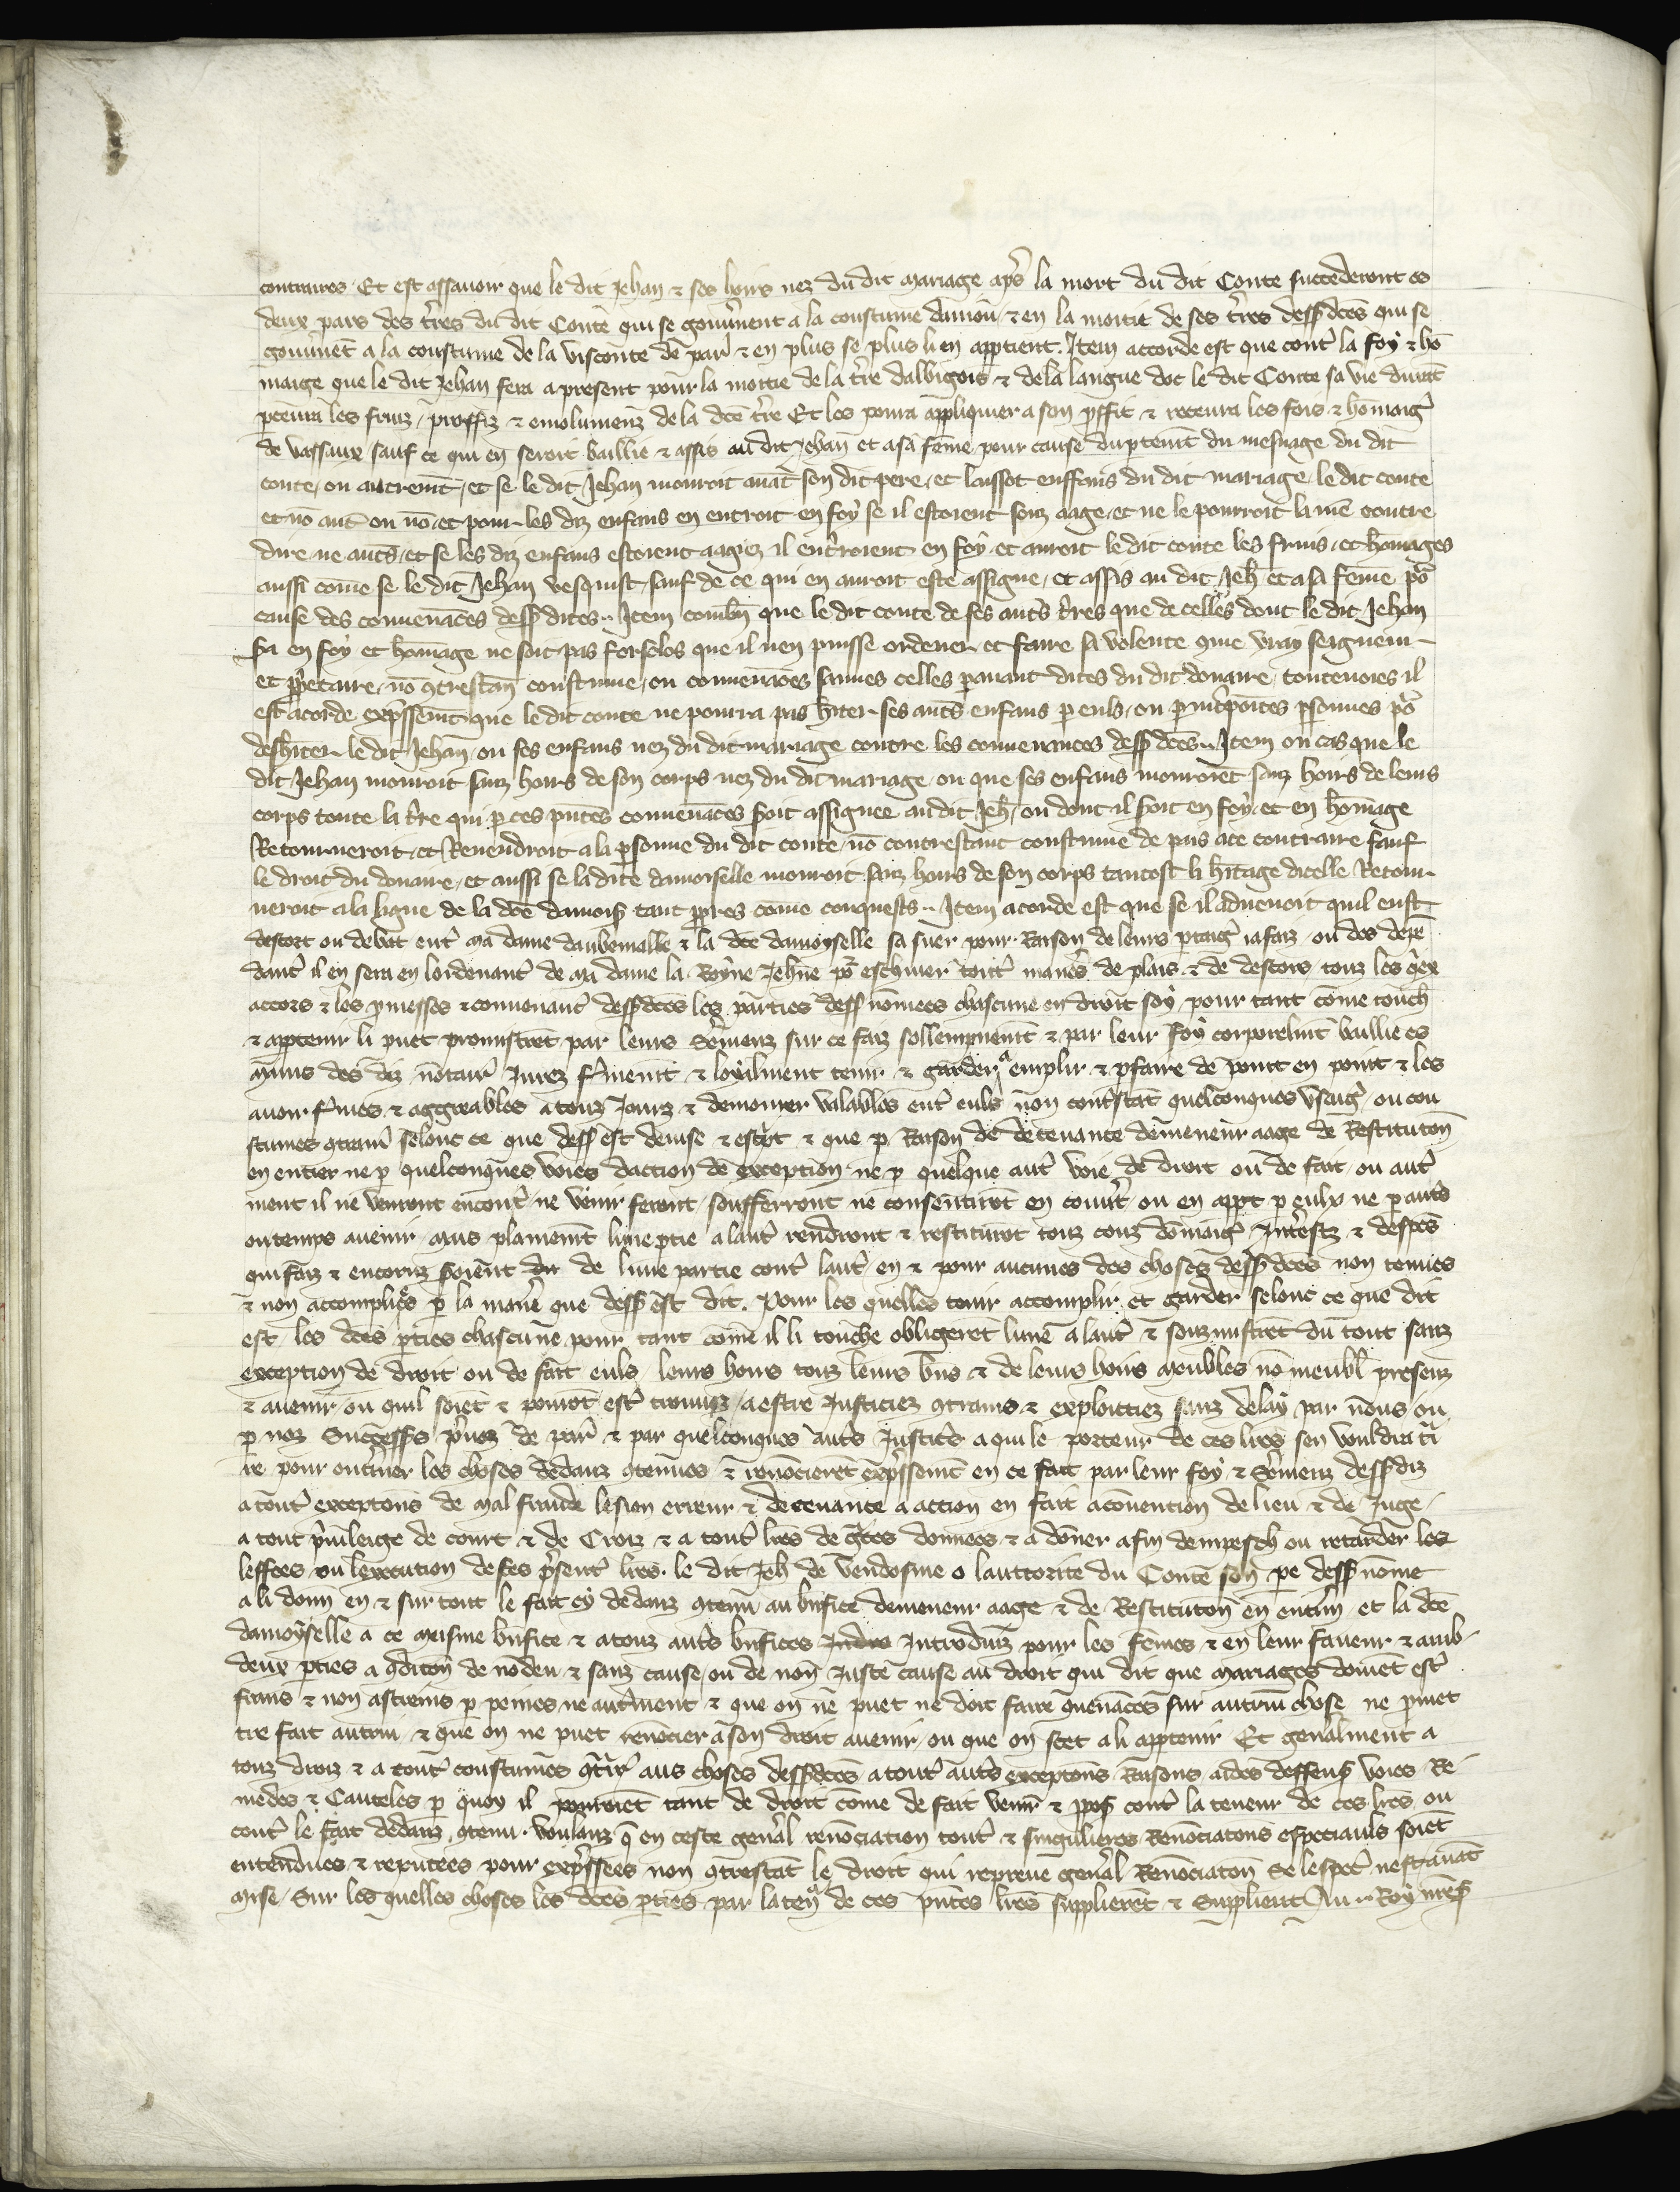 contraires. Et est assavoir que le dit Jehan & ses hoirs nez du dit mariage aps la mort du dit Conte succederont es
deux pars des tres du dit Conte qui se gouvnent a la coustume daniou & en la moitie de ses tres dessdces qui se
gouvnet a la coustume de la visconte de par & en plus se plus li en apptient. Item accorde est que cont la foy & ho
maige que le dit Jehan fera a present pour la moitie de la tre dalbigois & de la langue doc le dit Conte sa vie durat
pcevra les fruiz proffiz & emolumenz de la dce tre Et les poura appliquier a son pffit & recevra les fois & homaig
de vassaux sauf ce qui en seroit baillie & assis au dit Jehan et a sa feme pour cause du ptenit du mesnage du dit
conte ou autremt, et se le dit Jehan mouroit avat son dit pere, et laissot enffans du dit mariage le dit conte
et no aut ou no et pour les diz enfans en entroit en foy se il estoient souz aage, et ne le pourroit li me contre
dire ne auts, et se les diz enfans estoient aagiez il entroient en foy et auroit le dit conte les fruis, et homages
aussi come se le dit Jehan vesquist, sauf de ce qui en auroit este assigne, et assis au dit Jeh et a sa feme po
cause des convenaces dessdites. Item combn que le dit conte de ses auts tres que de celles dont le dit Jehan
sa en foy et homage ne soit pas forsclos que il nen puisse ordener et faire sa volente come vray seigneur
et ppetaire, no gtrestan coustume, ou convenaces sauves celles pavant dites du dit douaire, toutevoies il
est acorde expssemt que le dit conte ne poura pas hiter ses auts enfans p euls, ou p intpoites psonnes po
deshiter le dit Jehan, ou ses enfans nez du dit mariage contre les convenances dessdces. Item ou cas que le
dit Jehan mouroit sanz hoirs de son corps nez du dit mariage, ou que ses enfans mouroiet sanz hoirs de leurs
corps toute la tre qui p ces pntes convenaces soit assignee au dit Jeh, ou dont il soit en foy et en homage
Retourneroit et Revendroit a la psonne du dit conte, no contrestant coustume de pais a ce contraire sauf
le droit du douaire, et aussi se la dite damoiselle mouroit sanz hoirs de son corps tantost li hitage dicelle Retour
neroit a la ligne de la dce damois tant ppres come conquests. Item acorde est que se il advenoit quil eust
descort ou debat ent ma dame daubemalle & la dce damoyselle sa suer pour Raison de leurs ptaig ia faiz ou des depe
dant il en sera en lordenant de ma dame la Royne Jehne po eschiver tout manes de plais & de descors touz les qex
accors & les pmesses & convenant dessdces les parties dess nomees chascune en droit soy pour tant come touch
& apptenir li puet promistret par leurs Semenz sur ce faiz sollempnemt & par leur foy corporelmt baillie es
mains des diz notair Jurez fmemt & loyalment tenir & garder emplir & pfaire de point en point & les
avoir fmes & aggreables a touz Jourz & demourer valables ent euls non contstat quelconques Usaig ou cou
stumes gtraur selonc ce que dess est devise & escpt & que p Raison de decevance de meneur aage de Restituton
en entier ne p quelconques voies daction de exception ne p quelque aut voie de droit ou de fait ou aut
ment il ne venront encont ne venir feront souffrront ne consentirot en couvt ou en appt p eulx ne p auts
ou temps avenir mais plainemt lune ptie a laut rendront & restiturot touz couz domaig Intestz & despes
qui faiz & encoruz soient de lune partie cont laut en & pour aucunes des choses dessdces non tenues
& non accomplies p la mane que dess est dit. Pour les quelles tenir accomplir et garder selonc ce que dit
est les dces pties chascune pour tant come il li touche obligeret lune a laut & souzmistret du tout sanz
exception de droit ou de fait euls, leurs hoirs touz leurs bns & de leurs hoirs meubles no meubl presenz
& avenir ou quil soiet & pourot est trouvez a estre Justiciez gtrains & exploitiez sanz delay par nous ou
p noz Successs pvoz de par & par quelconques auts Justics a qui le porteur de ces lres sen vouldra ti
re pour entner les choses dedanz gtenues & renocieret expssemt en ce fait par leur foy & Semenz dessdiz
a tout exceptons de mal fraude lesion erreur & decevance a action en fait a covention de lieu & de Juge
a tout pvileige de court & de Croiz & a tout lres de graces donnees & a doner afin dempesch ou retarder les
leffces ou lexecution de ses psent lres. le dit Jeh de vendosme o lauttorite du Conte son pe dess nome
a li donn en & sur tout le fait cy dedanz gtenu au bnfice de meneur aage & de Restituton en entim et la dce
damoyselle a ce meisme bnfice & a touz auts bnfices Indro Introduiz pour les femes & en leur faveur & amb
deux pties a gditon de no deu & sanz cause ou de non Juste cause au droit qui dit que mariages doivet est
frans & non astreins p peines ne autment & que on ne puet ne doit faire qvenaces sur autrui chose ne pmet
tre fait autrui & que on ne puet renocier a son droit avenir ou que on scet a li apptenir Et genalment a
touz droiz & a tout coustumes gtrair aus choses dessdces a tout auts exceptons Raisons aides deffens voies Re
medes & Cauteles p quoy il pouroiet tant de droit come de fait venir & ppos cont la teneur de ces lres ou
cont le fait dedanz gtenu. voulanz q en ceste genal renociation tout & singulieres Renociatons especiauls soiet
entendues & reputees pour expssees non gtrestat le droit qui repreuve genal Renociaton Se lespec nest avat
mise. Sur les quelles choses les dces pties par la ten de ces pntes lres supplieret & Supplient Au Roy nres